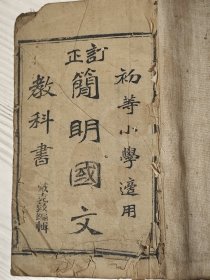 初等小學適用
訂正
簡明國文
教科書